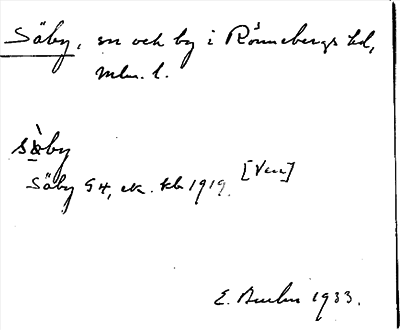 Säby, sn och by i Rönnebergs hd,
Mlm. l.
säby
Säby 94, ek. kb 1919. [Ven]
E. 1933.